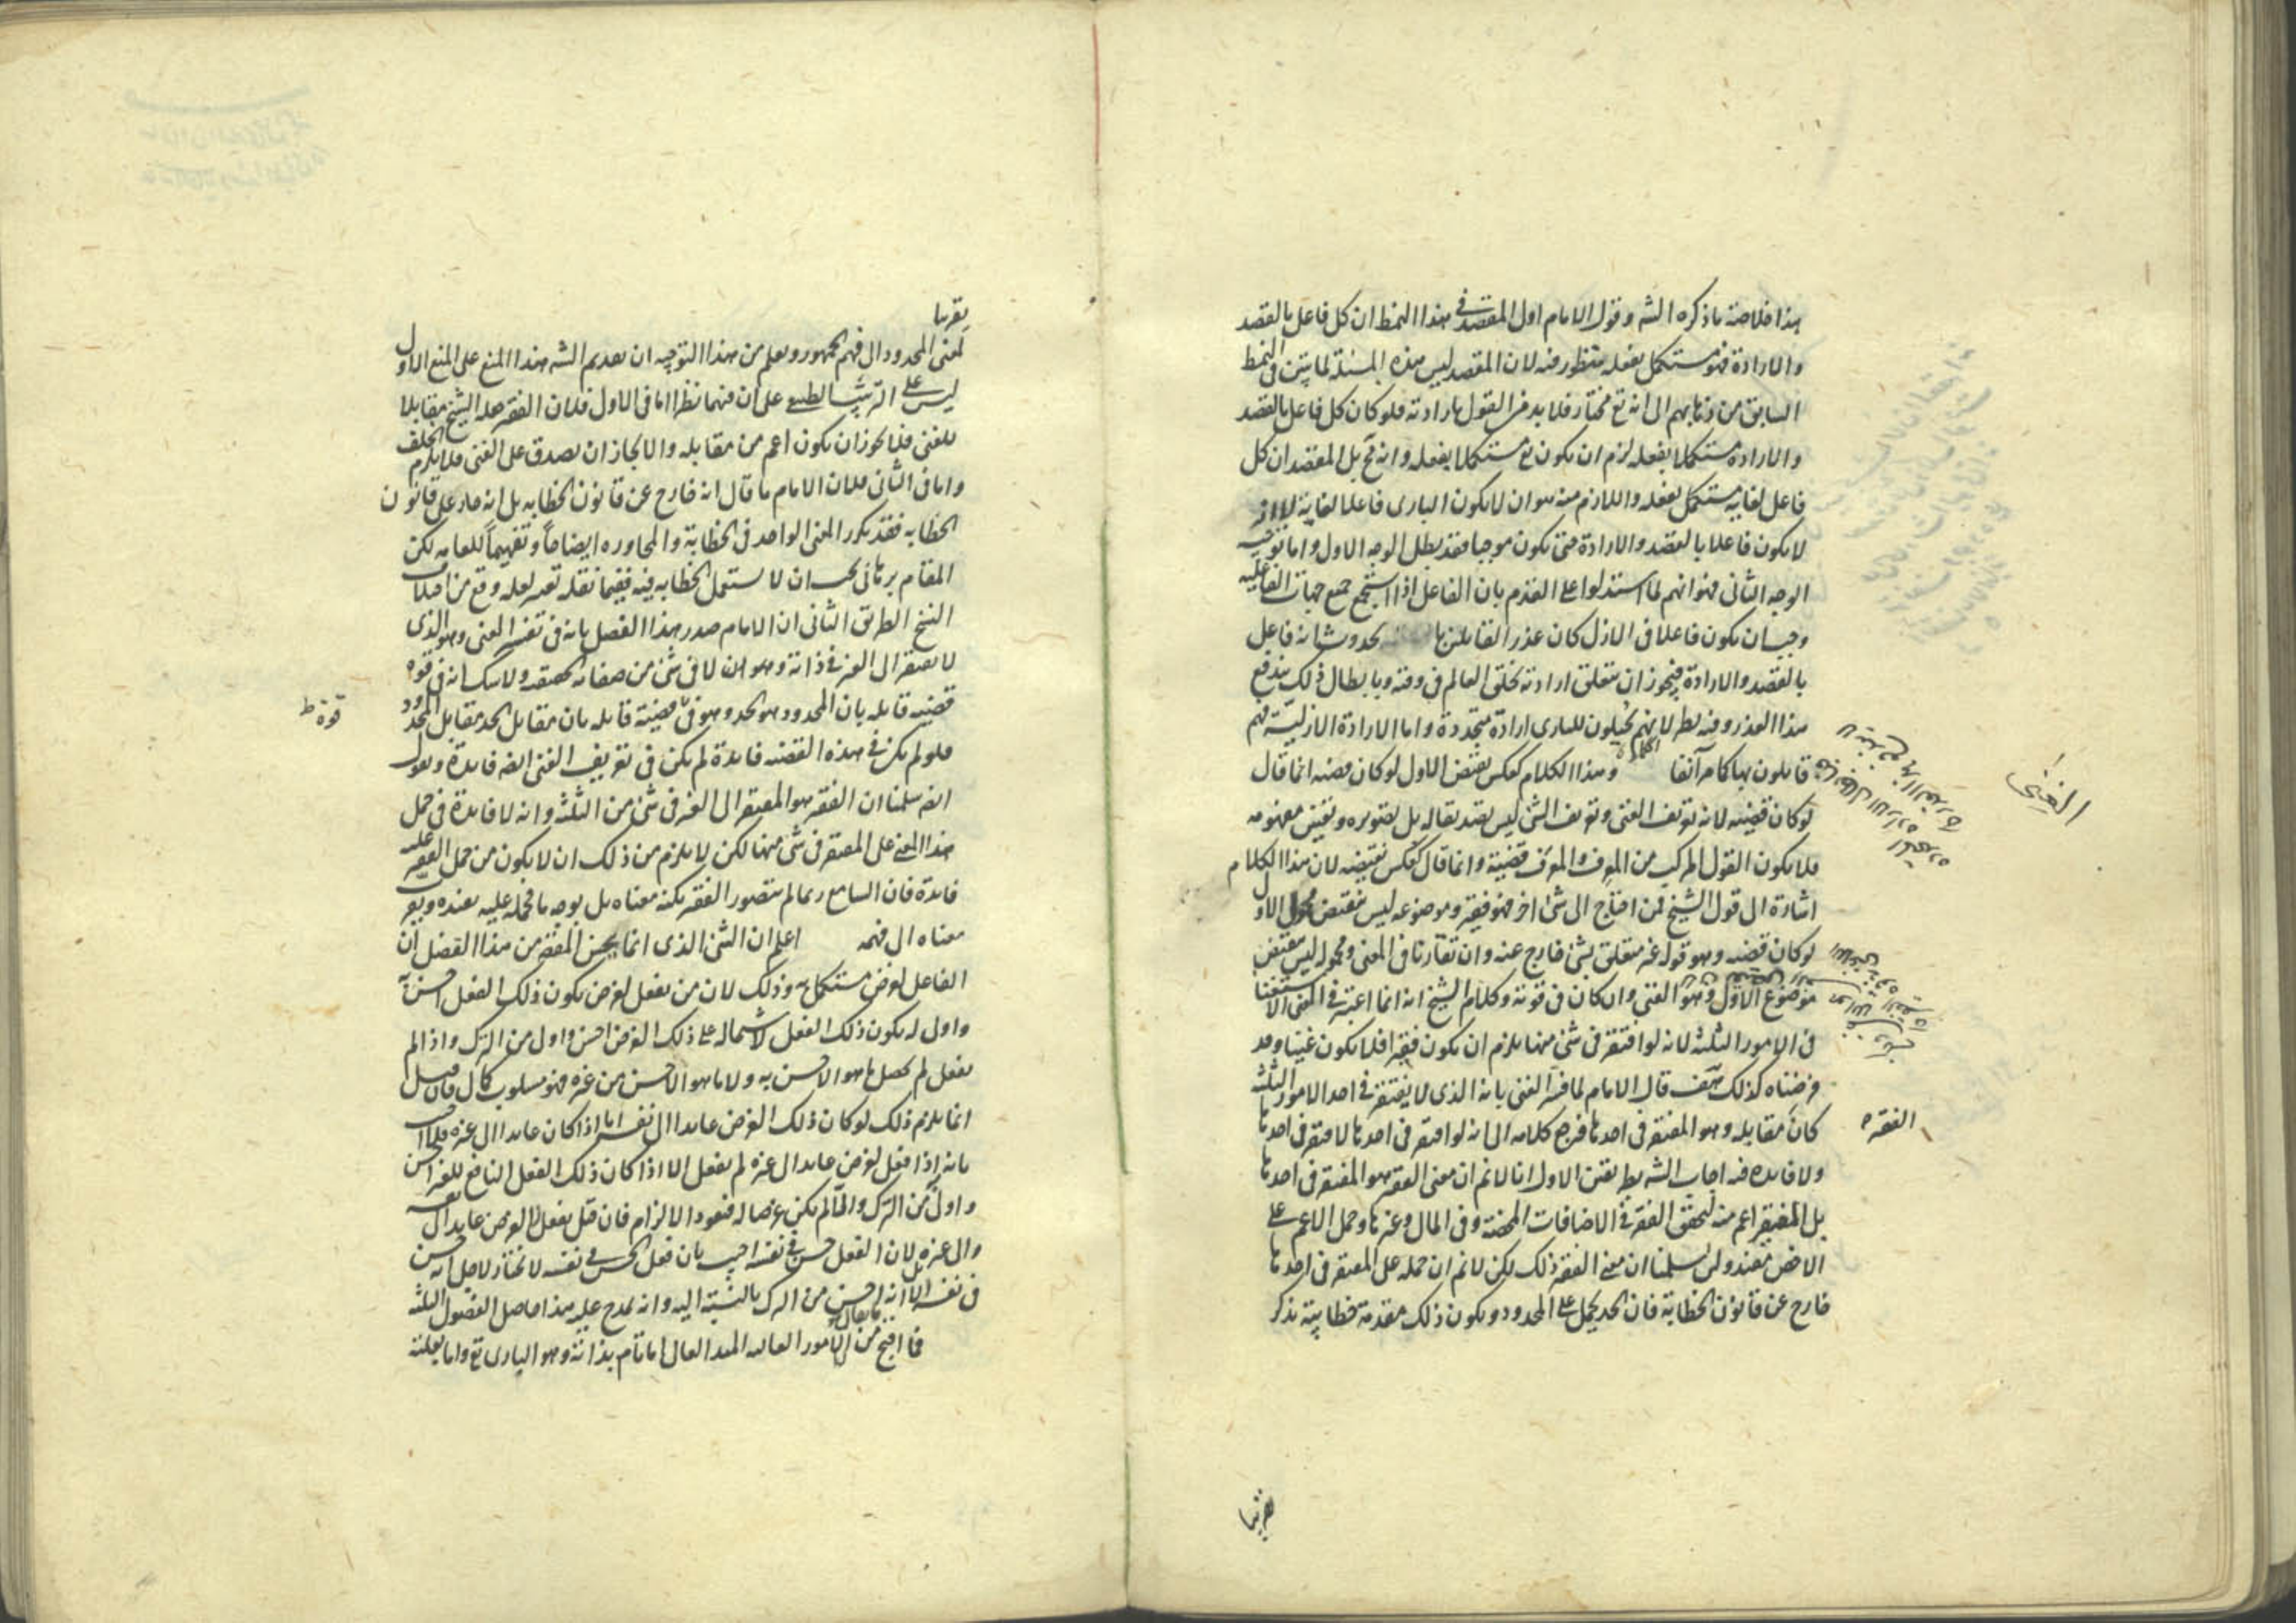 هذا خلاصة ما ذكره الشه وقول الامام اول المقصد فى هذا النمط ان كل فاعل بالقصد
والارادة فهو مستكمل بفعله منظور فيه لان المقصد ليس هذه المسئلة لما تبين فى النمط
السابق من ذهابهم الى انه تع مختار فلا بد من القول بارادته فلو كان كل فاعل بالقصد
والارادة مستكملا بفعله لزم ان يكون تع مستكملا بفعله وانه مح بل المقصد ان كل
فاعل لغاية مستكمل بفعله واللازم منه هو ان لا يكون البارى فاعلا لغاية لا انه
لا يكون فاعلا بالقصد والارادة حتى يكون موجبا فقد بطل الوجه الاول واما توجيه
الوجه الثانى فهو انهم لما استدلوا على القدم بان الفاعل اذا استجمع جميع جهات الفاعلية
وجب ان يكون فاعلا فى الازل كان عذر القائلين بحدوث انه فاعل
بالقصد والارادة فيجوز ان يتعلق ارادته بخلق العالم فى وقته وبابطال ذلك يندفع
هذا العذر وفيه نظر لانهم يحيلون للبارى ارادة متجددة واما الارادة الازلية فهم
قائلون بها كما مر آنفا وهذا الكلام كعكس نقيض الاول لو كان قضية انما قال
لو كان قضية لانه تعريف الغنى وتعريف الشئ ليس تصديقا له بل تصويره وتعيين مفهومه
فلا يكون القول المركب من المعرف والمعرف قضية وانما قال كعكس نقيضه لان هذا الكلام
اشارة الى قول الشيخ فمن احتاج الى شئ اخر فهو فقير وموضوعه ليس نقيض محمول الاول
لو كان قضية وهو قوله غير متعلق بشئ خارج عنه وان تقاربا فى المعنى ومحموله ليس نقيض
موضوع الاول وهو الغنى وان كان فى قوته وكلام الشيخ انه انما اعتبر فى الغنى الاستغناء
فى الامور الثلثة لانه لو افتقر فى شئ منها يلزم ان يكون فقيرا فلا يكون غنيا وقد
فرضناه كذلك هف قال الامام لما فسر الغنى بانه الذى لا يفتقر فى احد الامور الثلثة
كان مقابله وهو المفتقر فى احدها فرجع كلامه الى انه لو افتقر فى احدها لافتقر فى احدها
ولا فائدة فيه اجاب الشه بطريقين الاول انا لا نم ان معنى الفقير هو المفتقر فى احدها
بل المفتقر اعم منه لتحقق الفقر فى الاضافات المحضة وفى المال وغيرها وحمل الاعم على
الاخص مفيد ولئن سلمنا ان معنى الفقير ذلك لكن لا نم ان حمله على المفتقر فى احدها
خارج عن قانون الخطابة فان الحد يحمل على المحدود ويكون ذلك مقدمة خطابية تذكر
الغنى
الفقره
تقريبا
تقريبا
لمعنى المحدود الى فهم الجمهور ويعلم من هذا التوجيه ان تقديم الشه هذا المنع على المنع الاول
ليس على الترتيب الطبيعى على ان فيهما نظرا اما فى الاول فلان الفقير جعله الشيخ مقابلا
للغنى فلا يجوز ان يكون اعم من مقابله والا لجاز ان يصدق على الغنى فلا يلزم الخلف
واما فى الثانى فلان الامام ما قال انه خارج عن قانون الخطابه بل انه جار على قانون
الخطابه فقد يكرر المعنى الواحد فى الخطابة والمحاوره ايضاحا وتفهيما للعامه لكن
المقام برهانى يجب ان لا يستعمل الخطابه فيه ففيما نقله تغير لعله وقع من اختلاف
النسخ الطريق الثانى ان الامام صدر هذا الفصل بانه فى تفسير الغنى وهو الذى
لا يفتقر الى الغير فى ذاته وهو الان لا فى شئ من صفاته الحقيقة ولا شك انه فى قوة
قضية قائله بان المحدود هو الحد وهو فى قضية قائله بان مقابل الحد مقابل المحدود
فلو لم يكن فى هذه القضيه فائدة لم يكن فى تعريف الغنى ايضا فائدة ونقول
ايضا سلمنا ان الفقير هو المفتقر الى الغير فى شئ من الثلثة وانه لا فائدة فى حمل
هذا المعنى على المفتقر فى شئ منها لكن لا يلزم من ذلك ان لا يكون من حمل الفقير عليه
فائدة فان السامع ربما لم يتصور الفقير بكنه معناه بل بوجه ما فحمله عليه يفيده ويقرب
معناه الى فهمه اعلم ان الشئ الذى انما يحسن المقصد من هذا الفصل ان
الفاعل لغرض مستكمل به وذلك لان من يفعل لغرض يكون ذلك الفعل احسن به
واولى له يكون ذلك الفعل لاشتماله على ذلك الغرض احسن واولى من الترك واذا لم
يفعل لم يحصل ما هو الاحسن به ولا ما هو الاحسن من غيره فهو مسلوب كمال فان قيل
انما يلزم ذلك لو كان ذلك الغرض عائدا الى نفسه اما اذا كان عائدا الى غيره فلا اجاب
بانه اذا فعل لغرض عائد الى غيره لم يفعل الا اذا كان ذلك الفعل النافع للغير احسن
واولى من الترك والا لم يكن غرضا له فنعود الالزام فان قيل يفعل لا لغرض عايد الى نفسه
والى غيره بل لان الفعل حسن فى نفسه اجيب بان فعل الحسن فى نفسه لا يختار لاجل انه حسن
فى نفسه الا انه احسن من الترك بالنسبة اليه وانه يمدح عليه هذا حاصل الفصول الثلثة
فما اقبح ما يقال من ان الامور العالية المبدا العالى اما تام بذاته وهو البارى تع واما بعلته
قوة ط